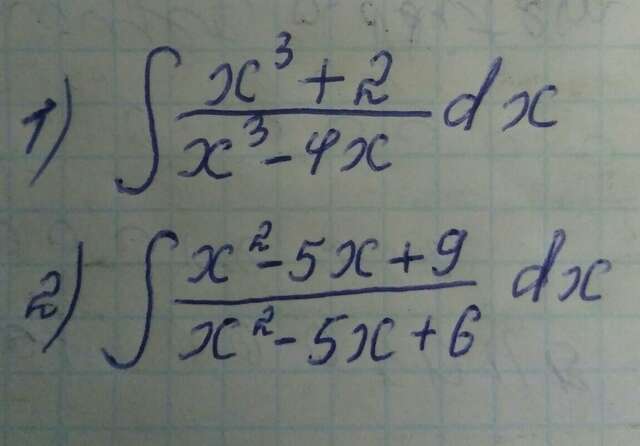 1) ∫ (x³ + 2)/(x³ - 4x) dx
2) ∫ (x² - 5x + 9)/(x² - 5x + 6) dx